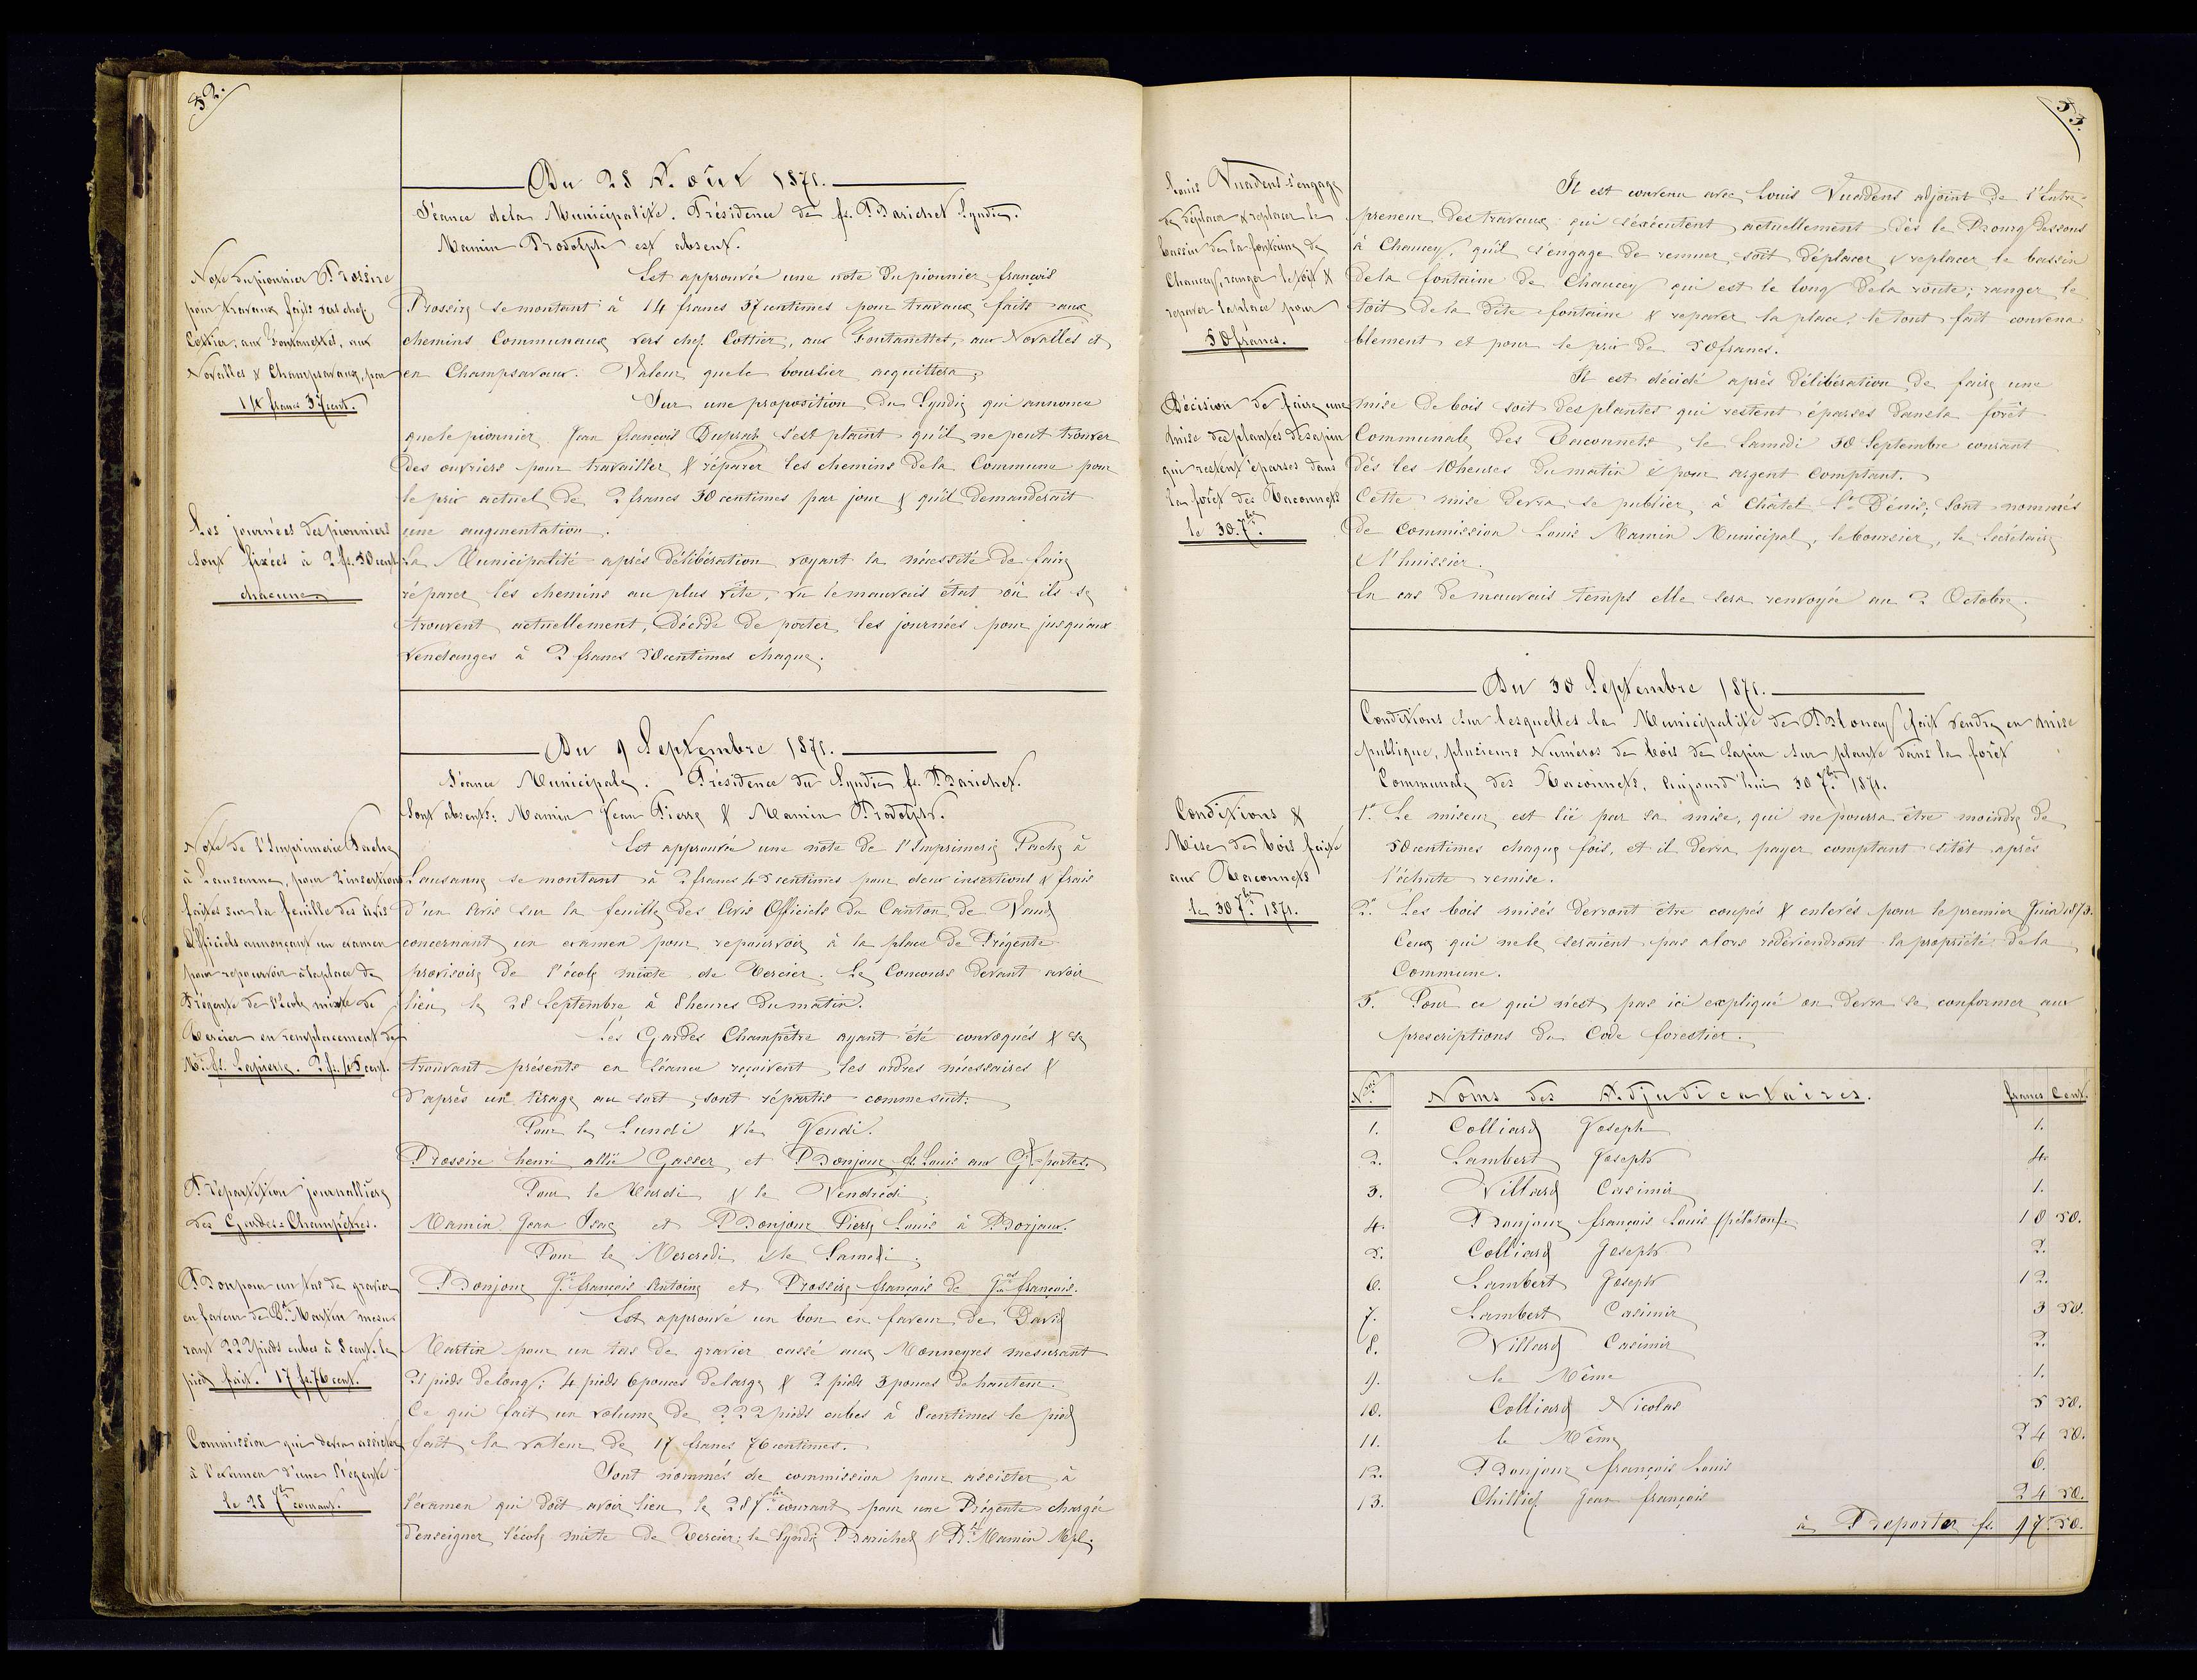 52.
Du 28 Août 1871.
Séance dela Municipalité. Présidence de fs. Barichet Syndic.
Mamin Rodolph est absent.
Note dupionnier Rossire
pour travaux faits vers chez
Cottier, aux Fontanettes, aux
Novalles & Champsavaux, pour
14 francs 37 cent.
Est approuvée une note du pionnier françois
Rossire se montant à 14 francs 37 centimes pour travaux faits aux
chemins Communaux vers chez Cottier, aux Fontanettes, aux Novalles et
en Champsavaux. Valeur que le boursier acquittera.
Sur une proposition du Syndic qui annonce
que le pionnier Jean françois Dupraz s'est plaint qu'il ne peut trouver
des ouvriers pour travailler & réparer les chemins dela Commune pour
le prix actuel de 2 francs 30 centimes par jour & qu'il demanderait
une augmentation.
Les journées des pionniers
sont fixées à 2 fs. 50 cent.
chacune.
La Municipalité après délibération voyant la nécessité de faire
réparer les chemins au plus vite, vu le mauvais état où ils se
trouvent actuellement, Décide de porter les journées pour jusqu'aux
vendanges à 2 francs 50 centimes chaque.
Du 9 Septembre 1871.
Séance Municipale. Présidence du Syndic fs. Barichet.
Sont absents: Mamin Jean Pierre & Mamin Rodolph.
Note de l'Imprimerie Pache
à Lausanne, pour 2 insertions
faites sur la feuille des Avis
Officiels annonçant un examen
pour repourvoir à la place de
Régente de l'école mixte de
Tercier en remplacement de
Mr. fs. Lapierre. 2 fs. 45 cent.
Est approuvée une note de l'Imprimerie Pache à
Lausanne se montant à 2 francs 45 centimes pour deux insertions & frais
d'un Avis sur la feuille des Avis Officiels du Canton de Vaud
concernant un examen pour repourvoir à la place de Régente
provisoire de l'école mixte de Tercier. Le Concours devant avoir
lieu le 28 Septembre à 8 heures du matin.
Les Gardes Champêtre ayant été convoqués & se
trouvant présents en Séance reçoivent les ordres nécessaires &
d'après un tirage au sort, sont répartis comme suit:
Pour le Lundi & le Jeudi.
Rossire henri allié Gasser et Bonjour fs. Louis aux Gdes portes.
Répartition journallière
des Gardes-Champêtres.
Pour le Mardi & le Vendredi.
Mamin Jean Isac et Bonjour Pierre Louis à Borjaux.
Pour le Mercredi & le Samedi.
Bonjour Jn. françois Antoine et Rossire françois de Jn. françois.
Bon pour un tas de gravier
en faveur de Dd. Martin mesu-
rant 222 pieds cubes à 8 cent. le
pied fait. 17 fs. 76 cent.
Est approuvé un bon en faveur de David
Martin pour un tas de gravier cassé aux Monneyres mesurant
21 pieds de long; 4 pieds 6 pouces de large & 2 pieds 3 pouces de hauteur.
Ce qui fait un volume de 222 pieds cubes à 8 centimes le pied
fait la valeur de 17 francs 76 centimes.
Commission qui devra assister
à l'examen d'une Régente
le 28 7bre courant.
Sont nommés de commission pour assister à
l'examen qui doit avoir lieu le 28 7bre courant pour une Régente chargée
d'enseigner l'école mixte de Tercier: le Syndic Barichet & Mamin Mpl.
53.
Louis Vuadens s'engage
de déplacer & replacer le
bassin de la fontaine de
Chaucey, ranger le toit &
reparer la place pour
50 francs.
Il est convenu avec Louis Vuadens adjoint de l'Entre-
preneur des travaux qui s'éxécutent actuellement dès le Bourg dessous
à Chaucey, qu'il s'engage de remuer, soit déplacer & replacer le bassin
dela fontaine de Chaucey qui est le long dela route; ranger le
toit de la dite fontaine & reparer la place. le tout fait convena-
blement et pour le prix de 50 francs.
Décision de faire une
mise des plantes de sapin
qui restent éparses dans
la forêt des Baconnets
le 30. 7bre
Il est décidé après délibération de faire une
mise de bois soit des plantes qui restent éparses dans la forêt
Communale des Baconnets le Samedi 30 Septembre courant
dès les 10 heures du matin & pour argent comptant.
Cette mise devra se publier à Châtel St. Dénis; Sont nommés
de Commission Louis Mamin Municipal, le boursier, le Secrétaire
& l'huissier.
En cas de mauvais temps elle sera renvoyée au 2 Octobre.
Du 30 Septembre 1871.
Conditions sur lesquelles la Municipalité de Blonay fait vendre en mise
publique, plusieurs Numéros de bois de Sapin sur plante dans la forêt
Communale des Baconnets, Aujourd'hui 30 7bre 1871.
Conditions &
Mise de bois faite
aux Baconnets
le 30 7bre 1871.
1º. Le miseur est lié par sa mise, qui ne pourra être moindre de
50 centimes chaque fois, et il devra payer comptant sitôt après
l'échute remise.
2º. Les bois misés devront être coupés & enlevés pour le premier Juin 1872.
Ceux qui ne le seraient pas alors redeviendront la propriété dela
Commune.
3º. Pour ce qui n'est pas ici expliqué on devra se conformer aux
prescriptions du Code forestier.
Nos. Noms des Adjudicataires. francs Cent.
1. Colliard Joseph 1.
2. Lambert Joseph 4.
3. Villard Casimir 1.
4. Bonjour françois Louis (péloton) 10 50.
5. Colliard Joseph 2.
6. Lambert Joseph 12.
7. Lambert Casimir 3 50.
8. Villard Casimir 2.
9. le Même 1.
10. Colliard Nicolas 5 50.
11. le Même 24 50.
12. Bonjour françois Louis 6.
13. Chillier Jean françois 24 50.
à Reporter fs. 97 50.